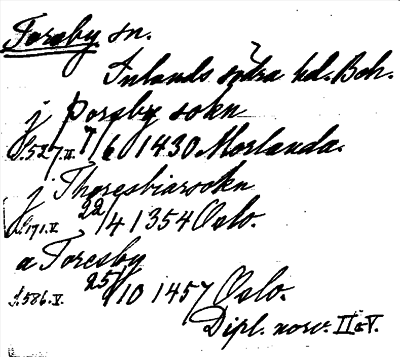 Forsby sn.
Inlands södra hd. Boh.
j Þorsby sokn
S. 527. II. 7/6 1430 Morlanda.
j Thoresbiarsokn
S. 171. V. 22/4 1354 Oslo.
a Foresby
S. 586. V. 25/10 1457 Oslo.
Dipl. norv. II o. V.